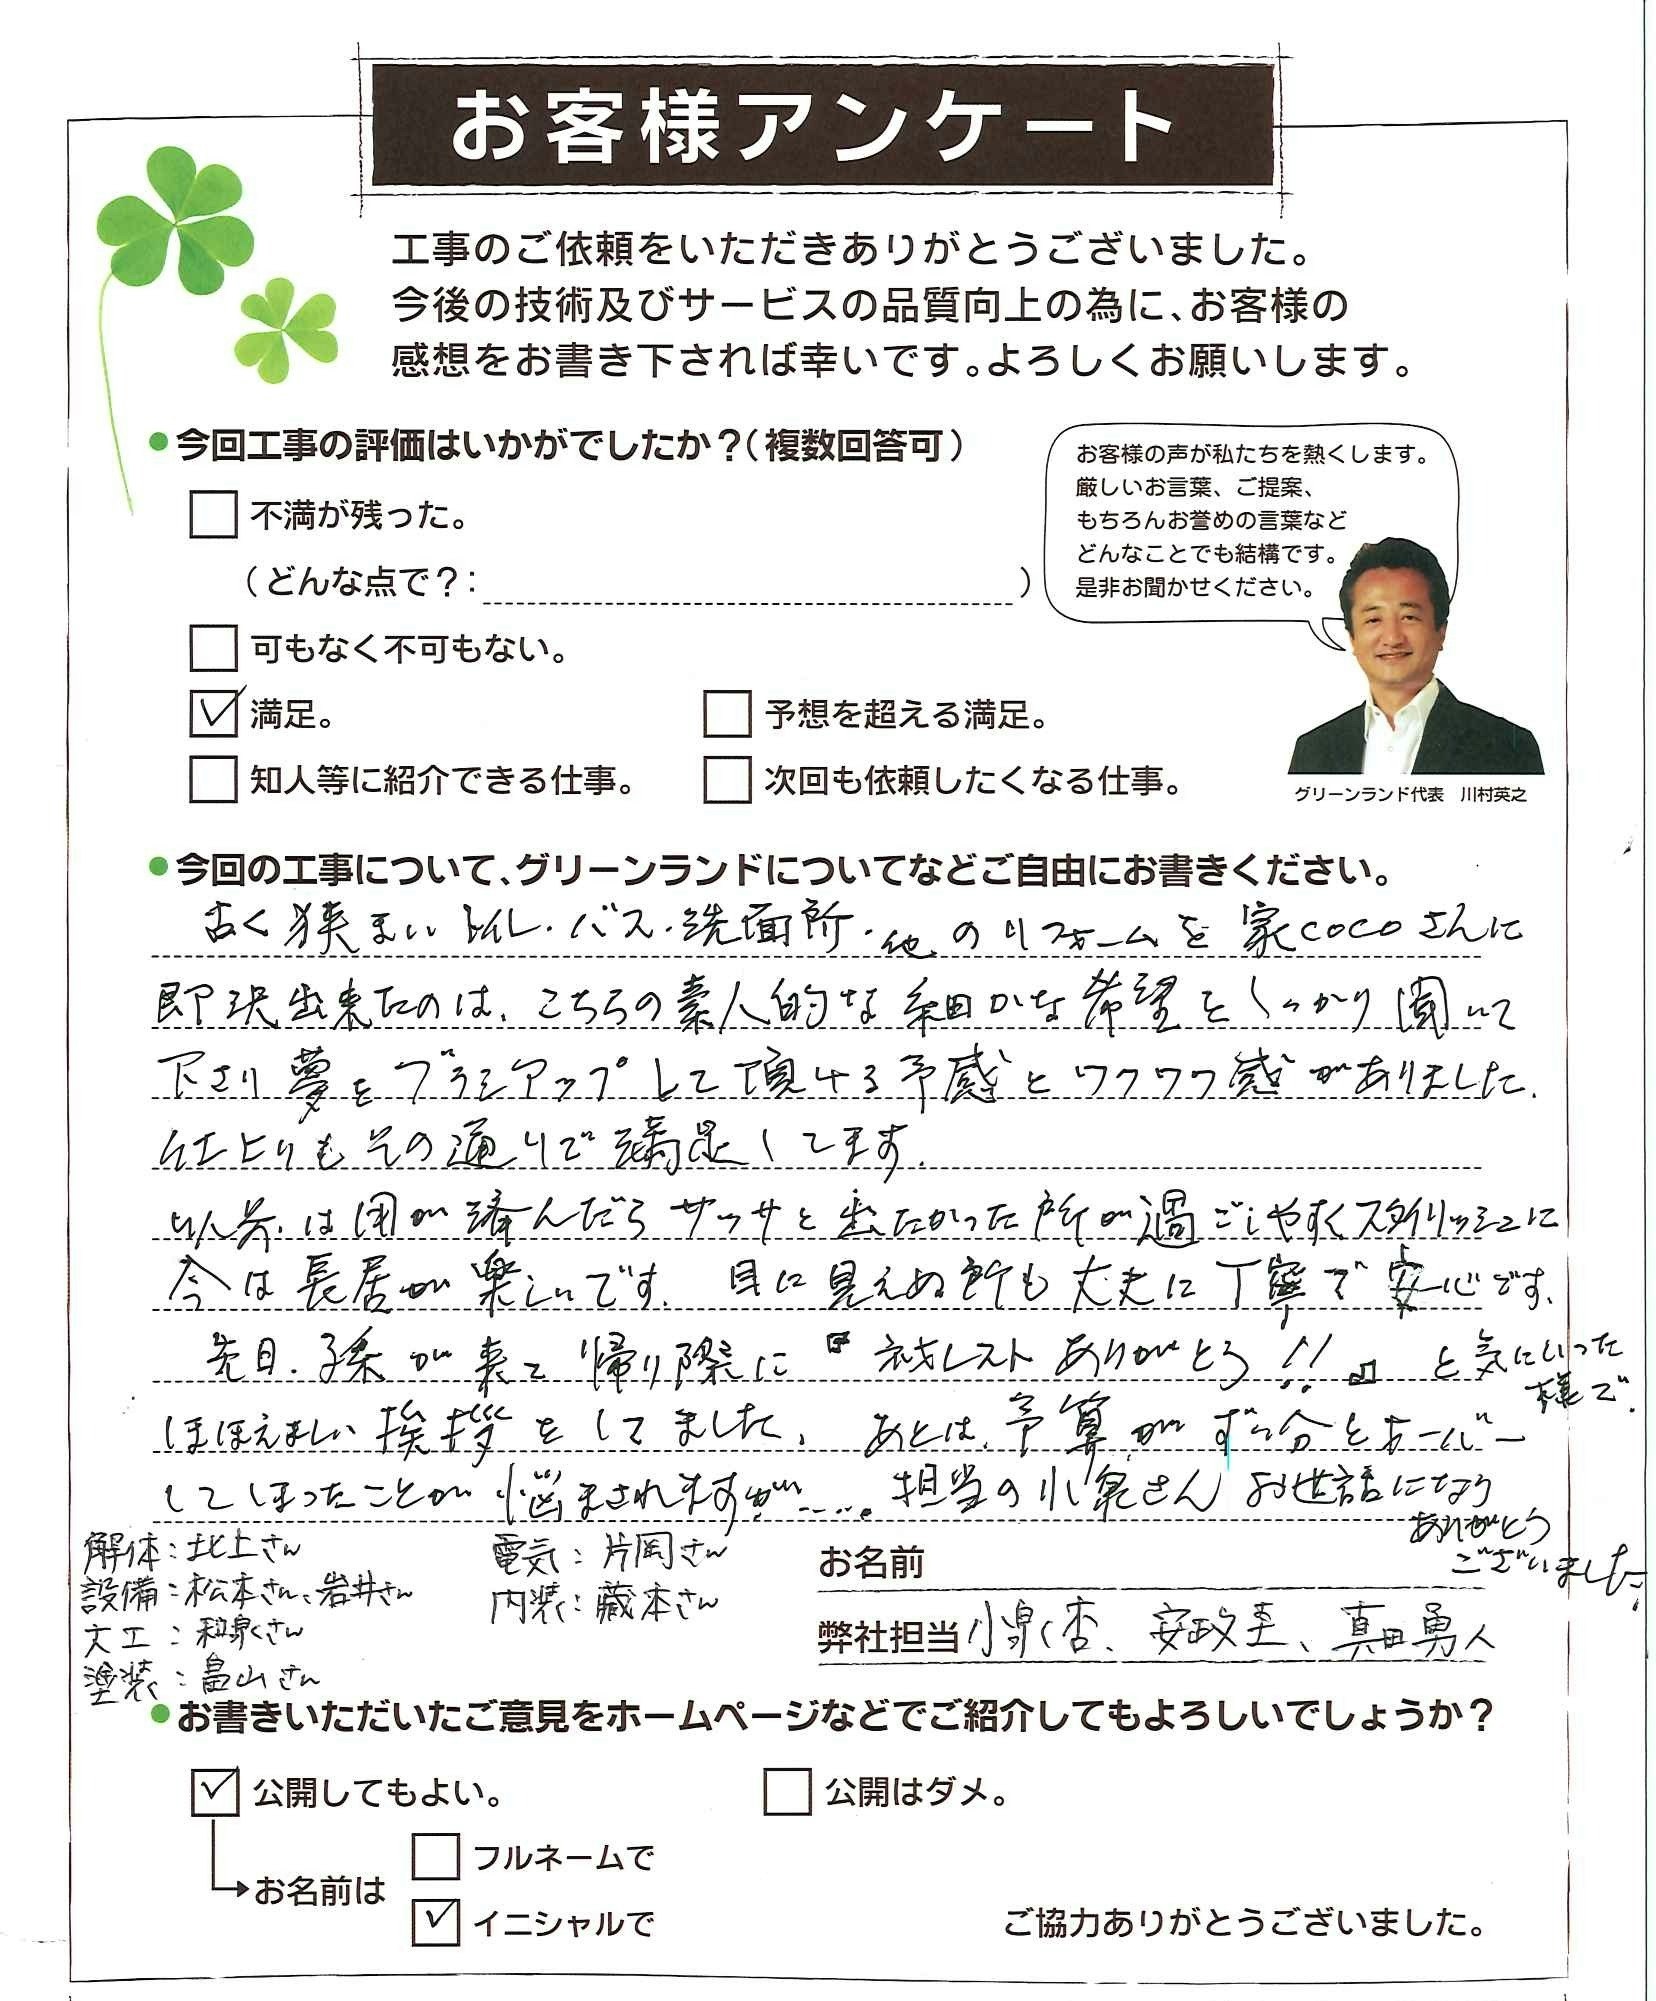 お客様アンケート
工事のご依頼をいただきありがとうございました。
今後の技術及びサービスの品質向上の為に、お客様の
感想をお書き下されば幸いです。よろしくお願いします。
●今回工事の評価はいかがでしたか？（複数回答可）
不満が残った。
（どんな点で？：　）
可もなく不可もない。
満足。
予想を超える満足。
知人等に紹介できる仕事。
次回も依頼したくなる仕事。
お客様の声が私たちを熱くします。
厳しいお言葉、ご提案、
もちろんお誉めの言葉など
どんなことでも結構です。
是非お聞かせください。
グリーンランド代表　川村英之
●今回の工事について、グリーンランドについてなどご自由にお書きください。
古く狭まいトイレ・バス・洗面所・他のリフォームを家cocoさんに
即決出来たのは、こちらの素人的な細かな希望をしっかり聞いて
下さり夢をブラシアップして頂ける予感とワクワク感がありました.
仕上りもその通りで満足してます.
以前は用が済んだらサッサと出たかった所が過ごしやすくスタイリッシュに
今は長居が楽しいです. 目に見えぬ所も丈夫に丁寧で安心です.
先日、孫が来て帰り際に『 レストありがとう!!』と気にいった
様で.
ほほえましい挨拶をしてました. あとは、予算がずい分とオーバー
してしまったことが悩まされますが……. 担当の小泉さんお世話になり
ありがとう
ございました!
解体：北上さん
設備：松本さん、岩井さん
大工：和泉さん
塗装：畠山さん
電気：片岡さん
内装：藏本さん
お名前
弊社担当 小泉杏、安政圭、真田勇人
●お書きいただいたご意見をホームページなどでご紹介してもよろしいでしょうか？
公開してもよい。
公開はダメ。
お名前は
フルネームで
イニシャルで
ご協力ありがとうございました。